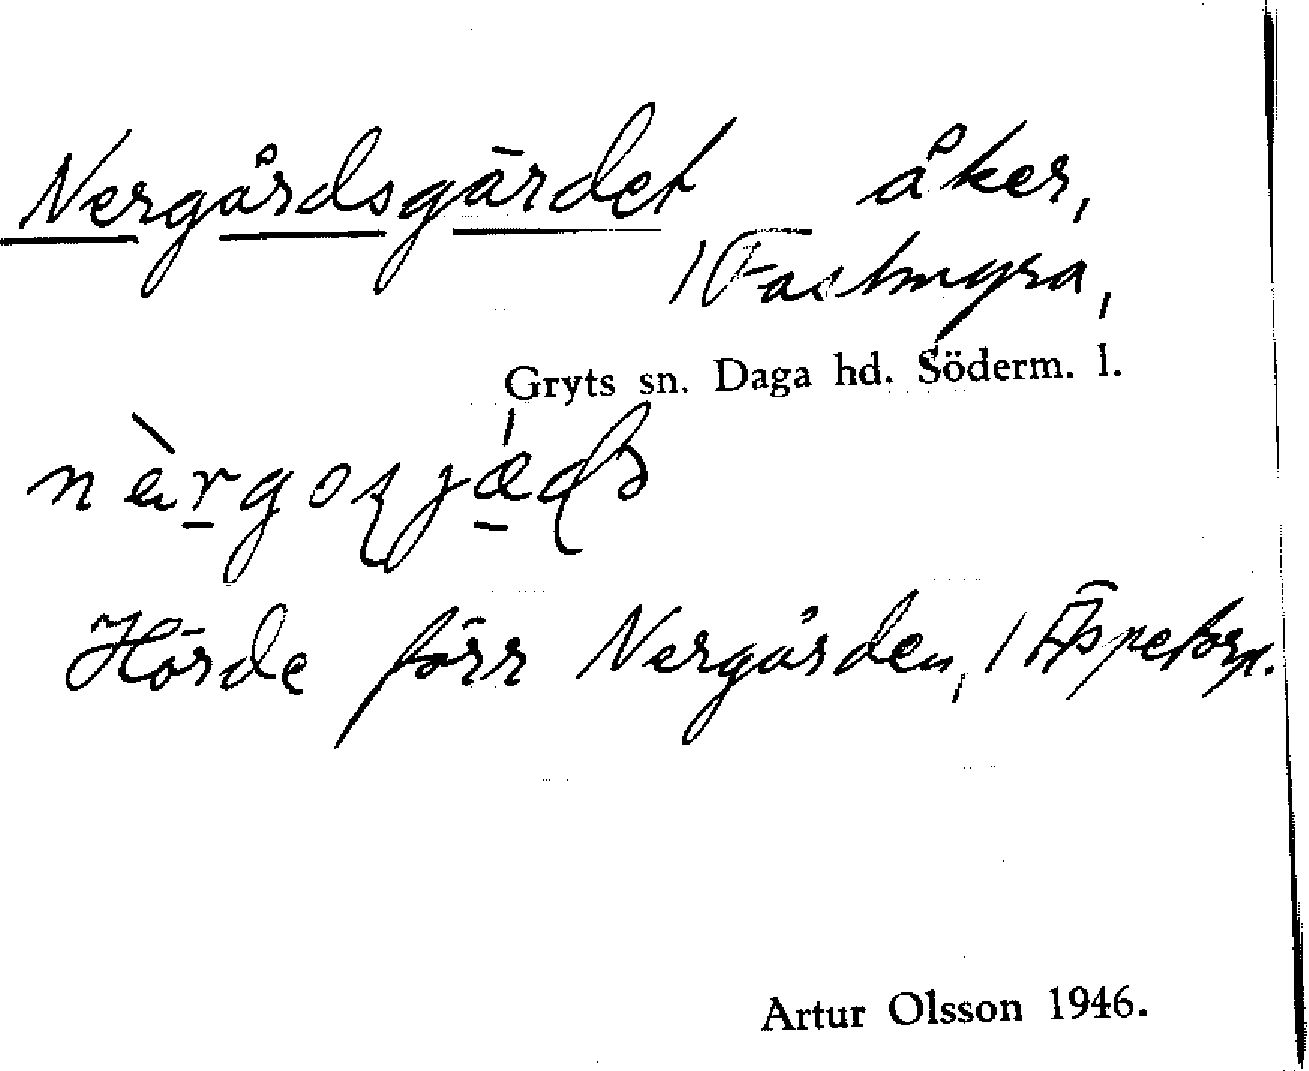 Nergårdsgärdet åker,
1 Fastmyra,
Gryts sn. Daga hd. Söderm. l.
Hörde förr Nergården, 1 Äspetorp.
Artur Olsson 1946.